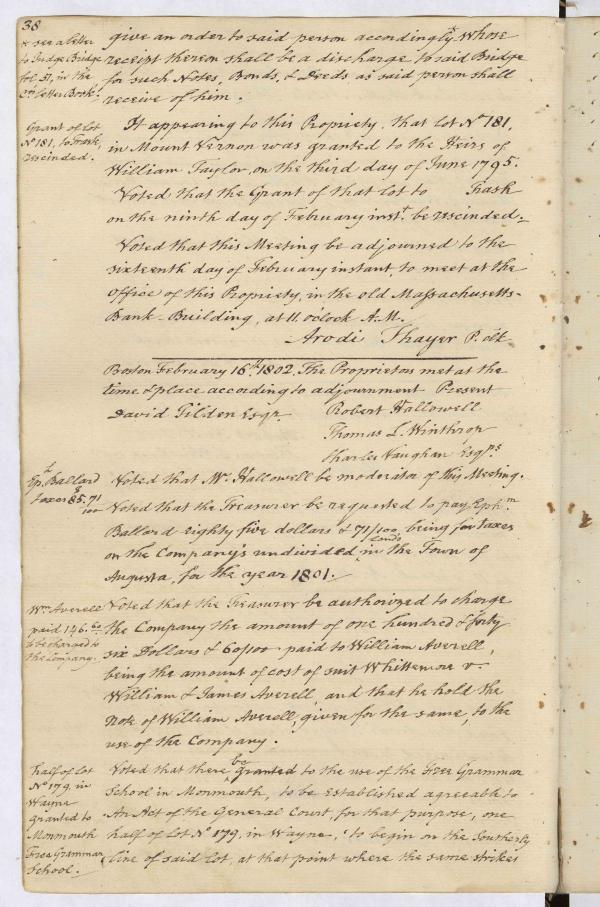 38
* see a letter
to Judge Bridge
fol. 51, in the
2nd Letter Book.
give an order to said person accordingly * whose
receipt thereon shall be a discharge to said Bridge
for such Notes, Bonds, & Deeds as said person shall
receive of him.
Grant of lot
No 181, to Trask,
rescinded.
It appearing to this Propriety, that lot No 181,
in Mount Vernon was granted to the Heirs of
William Taylor, on the third day of June 1795.
Voted that the Grant of that lot to Trask
on the ninth day of February inst. be rescinded.
Voted that this Meeting be adjourned to the
sixteenth day of February instant to meet at the
Office of this Propriety, in the old Massachusetts-
Bank-Building, at 11. o'clock A.M.
Arodi Thayer P. clk
Boston February 16th 1802. The Proprietors met at the
time & place according to adjournment Present
David Tilden Esqr. Robert Hallowell
Thomas L. Winthrop
Charles Vaughan Esqrs
Voted that Mr. Hallowell be moderator of this Meeting.
Ep. Ballard
taxes $85.71/100
Voted that the Treasurer be requested to pay Ephm
Ballard eighty five dollars & 71/100 being for taxes
on the Company's undivided lands in the Town of
Augusta, for the year 1801.
Wm Averell
paid 146.60
to be charged to
the Company.
Voted that the Treasurer be authorized to charge
the Company the amount of one hundred & forty
six Dollars & 60/100 paid to William Averell,
being the amount of cost of suit Whittemore v.
William & James Averell, and that he hold the
note of William Averell, given for the same, to the
use of the Company.
half of lot
No 179, in
Wayne
granted to
Monmouth
Free Grammar
School.
Voted that there be granted to the use of the Free Grammar
School in Monmouth, to be established agreeable to
An Act of the General Court, for that purpose, one
half of lot No 179, in Wayne, to begin on the Southerly
line of said lot, at that point where the same strikes